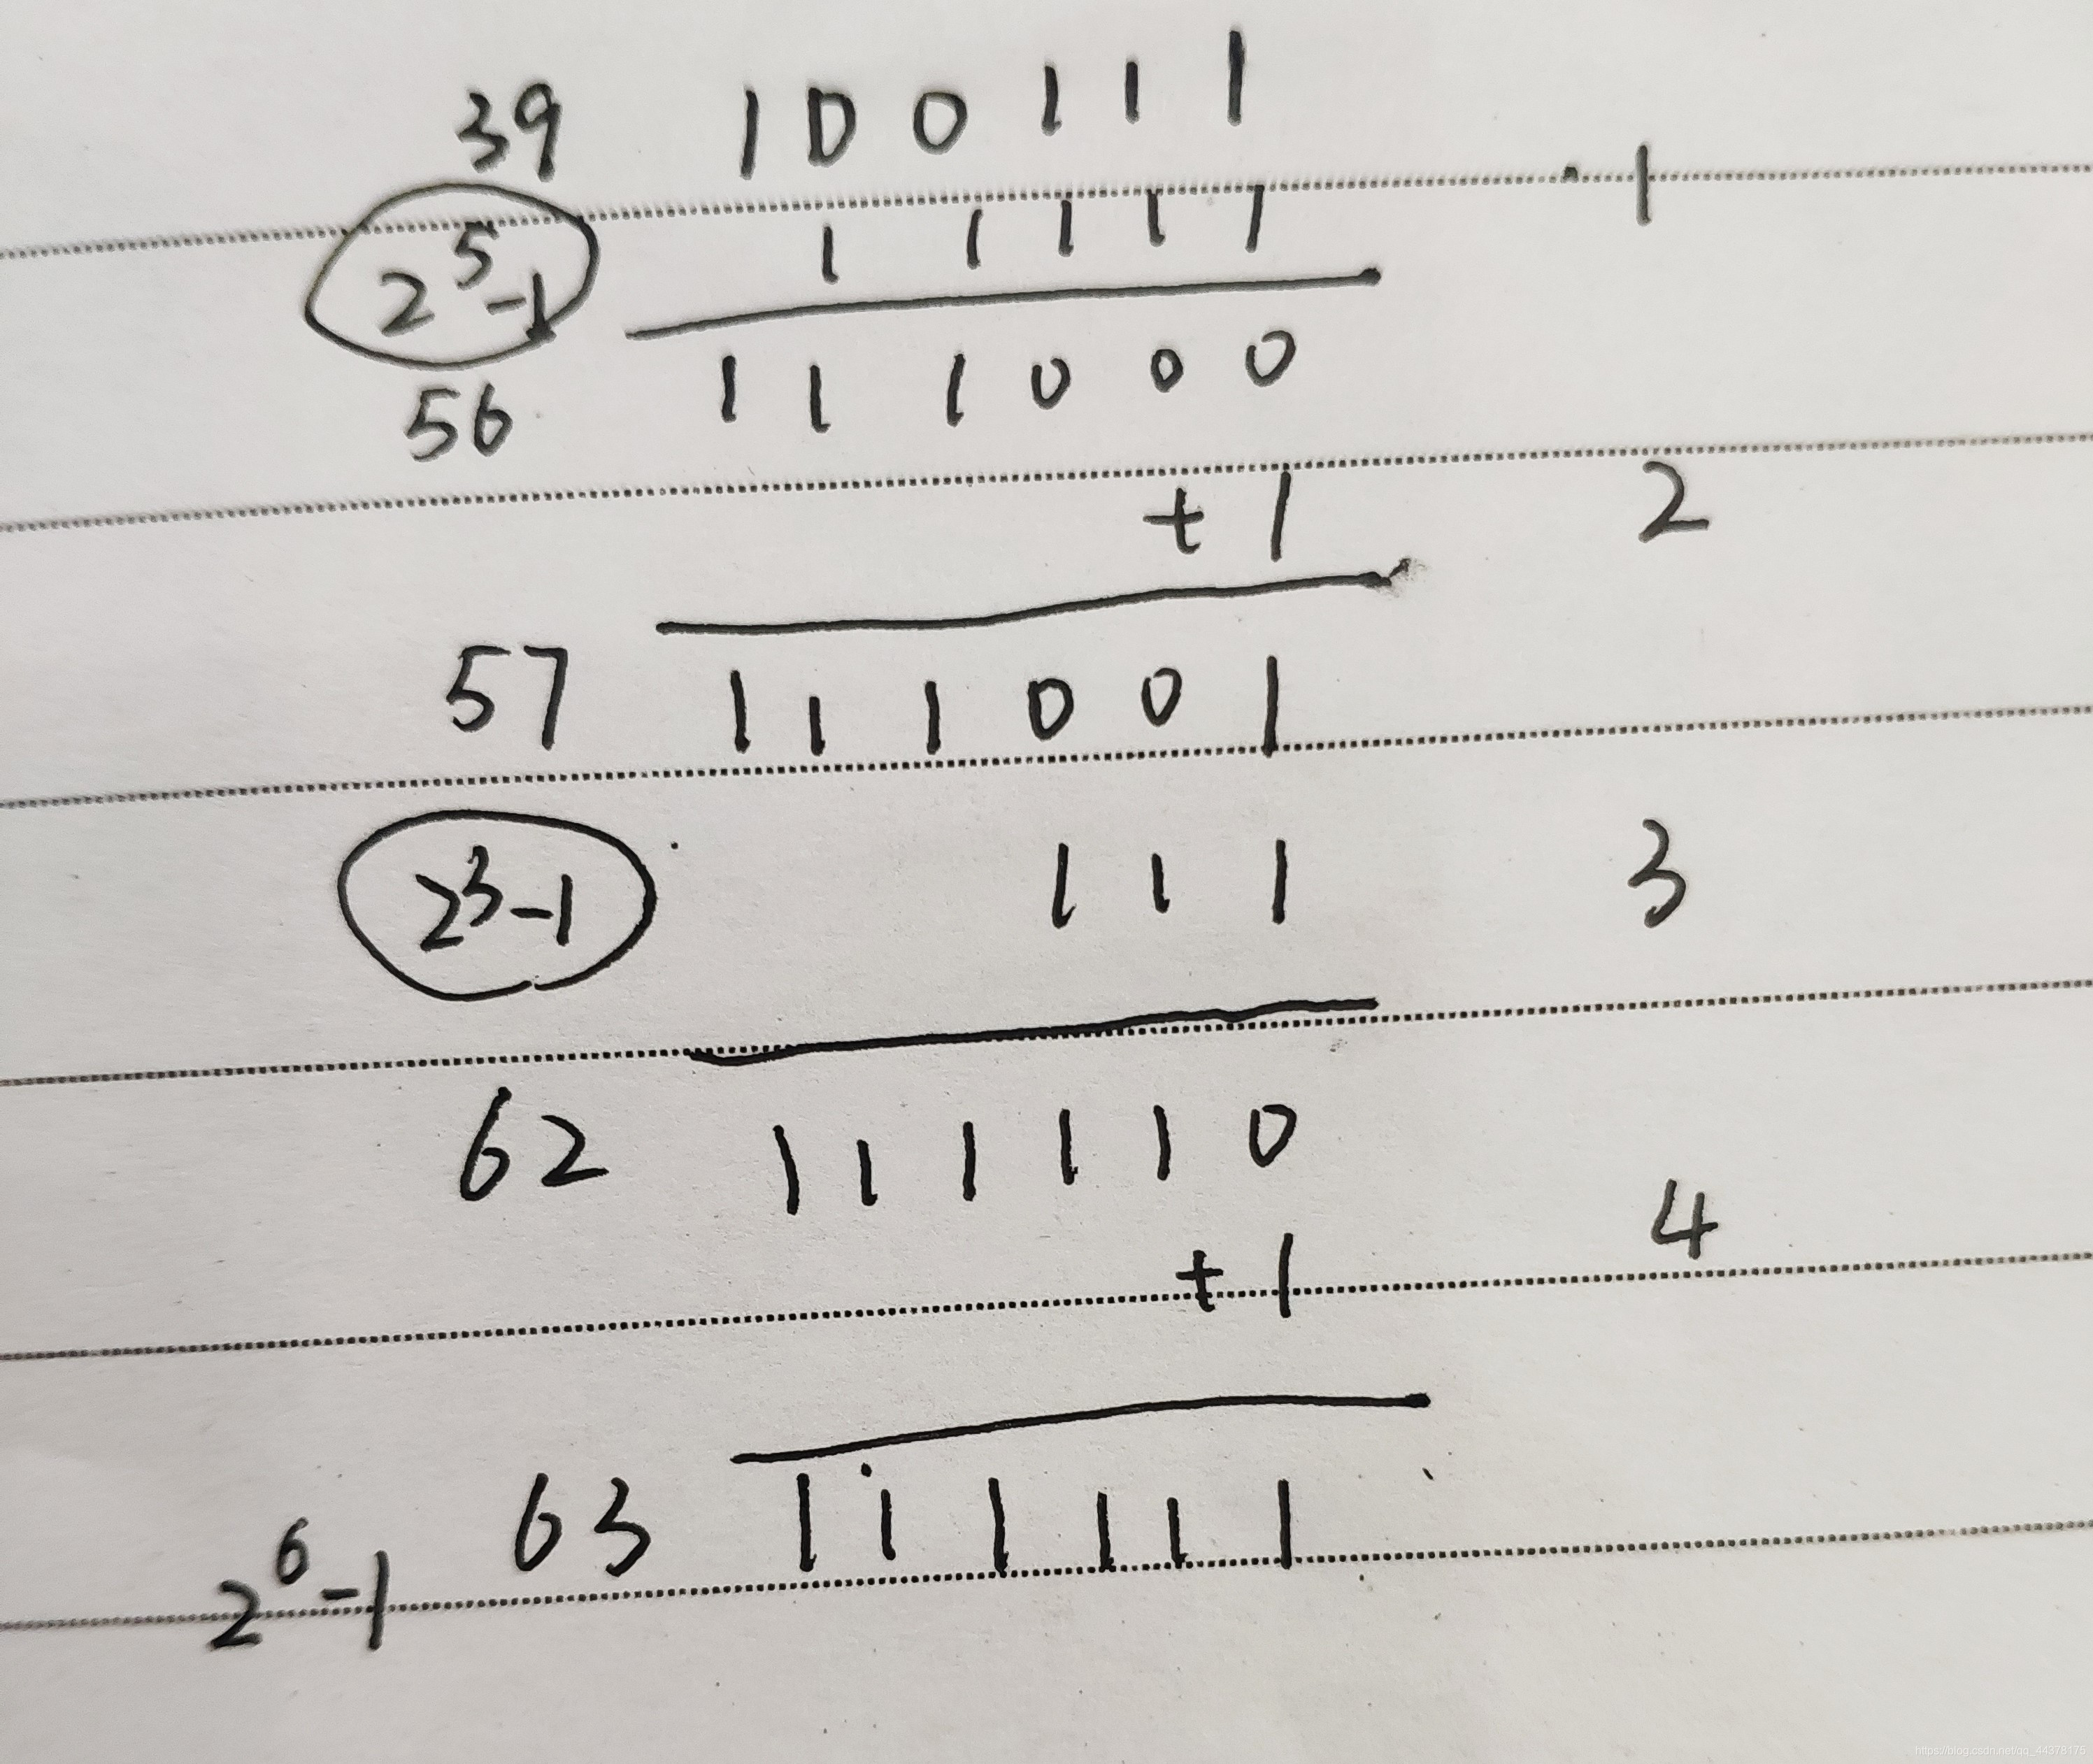 39 1 0 0 1 1 1
2^5-1 1 1 1 1 1 1
56 1 1 1 0 0 0
+ 1 2
57 1 1 1 0 0 1
2^3-1 1 1 1 3
62 1 1 1 1 1 0
+ 1 4
2^6-1 63 1 1 1 1 1 1
https://blog.csdn.net/qq_44378175